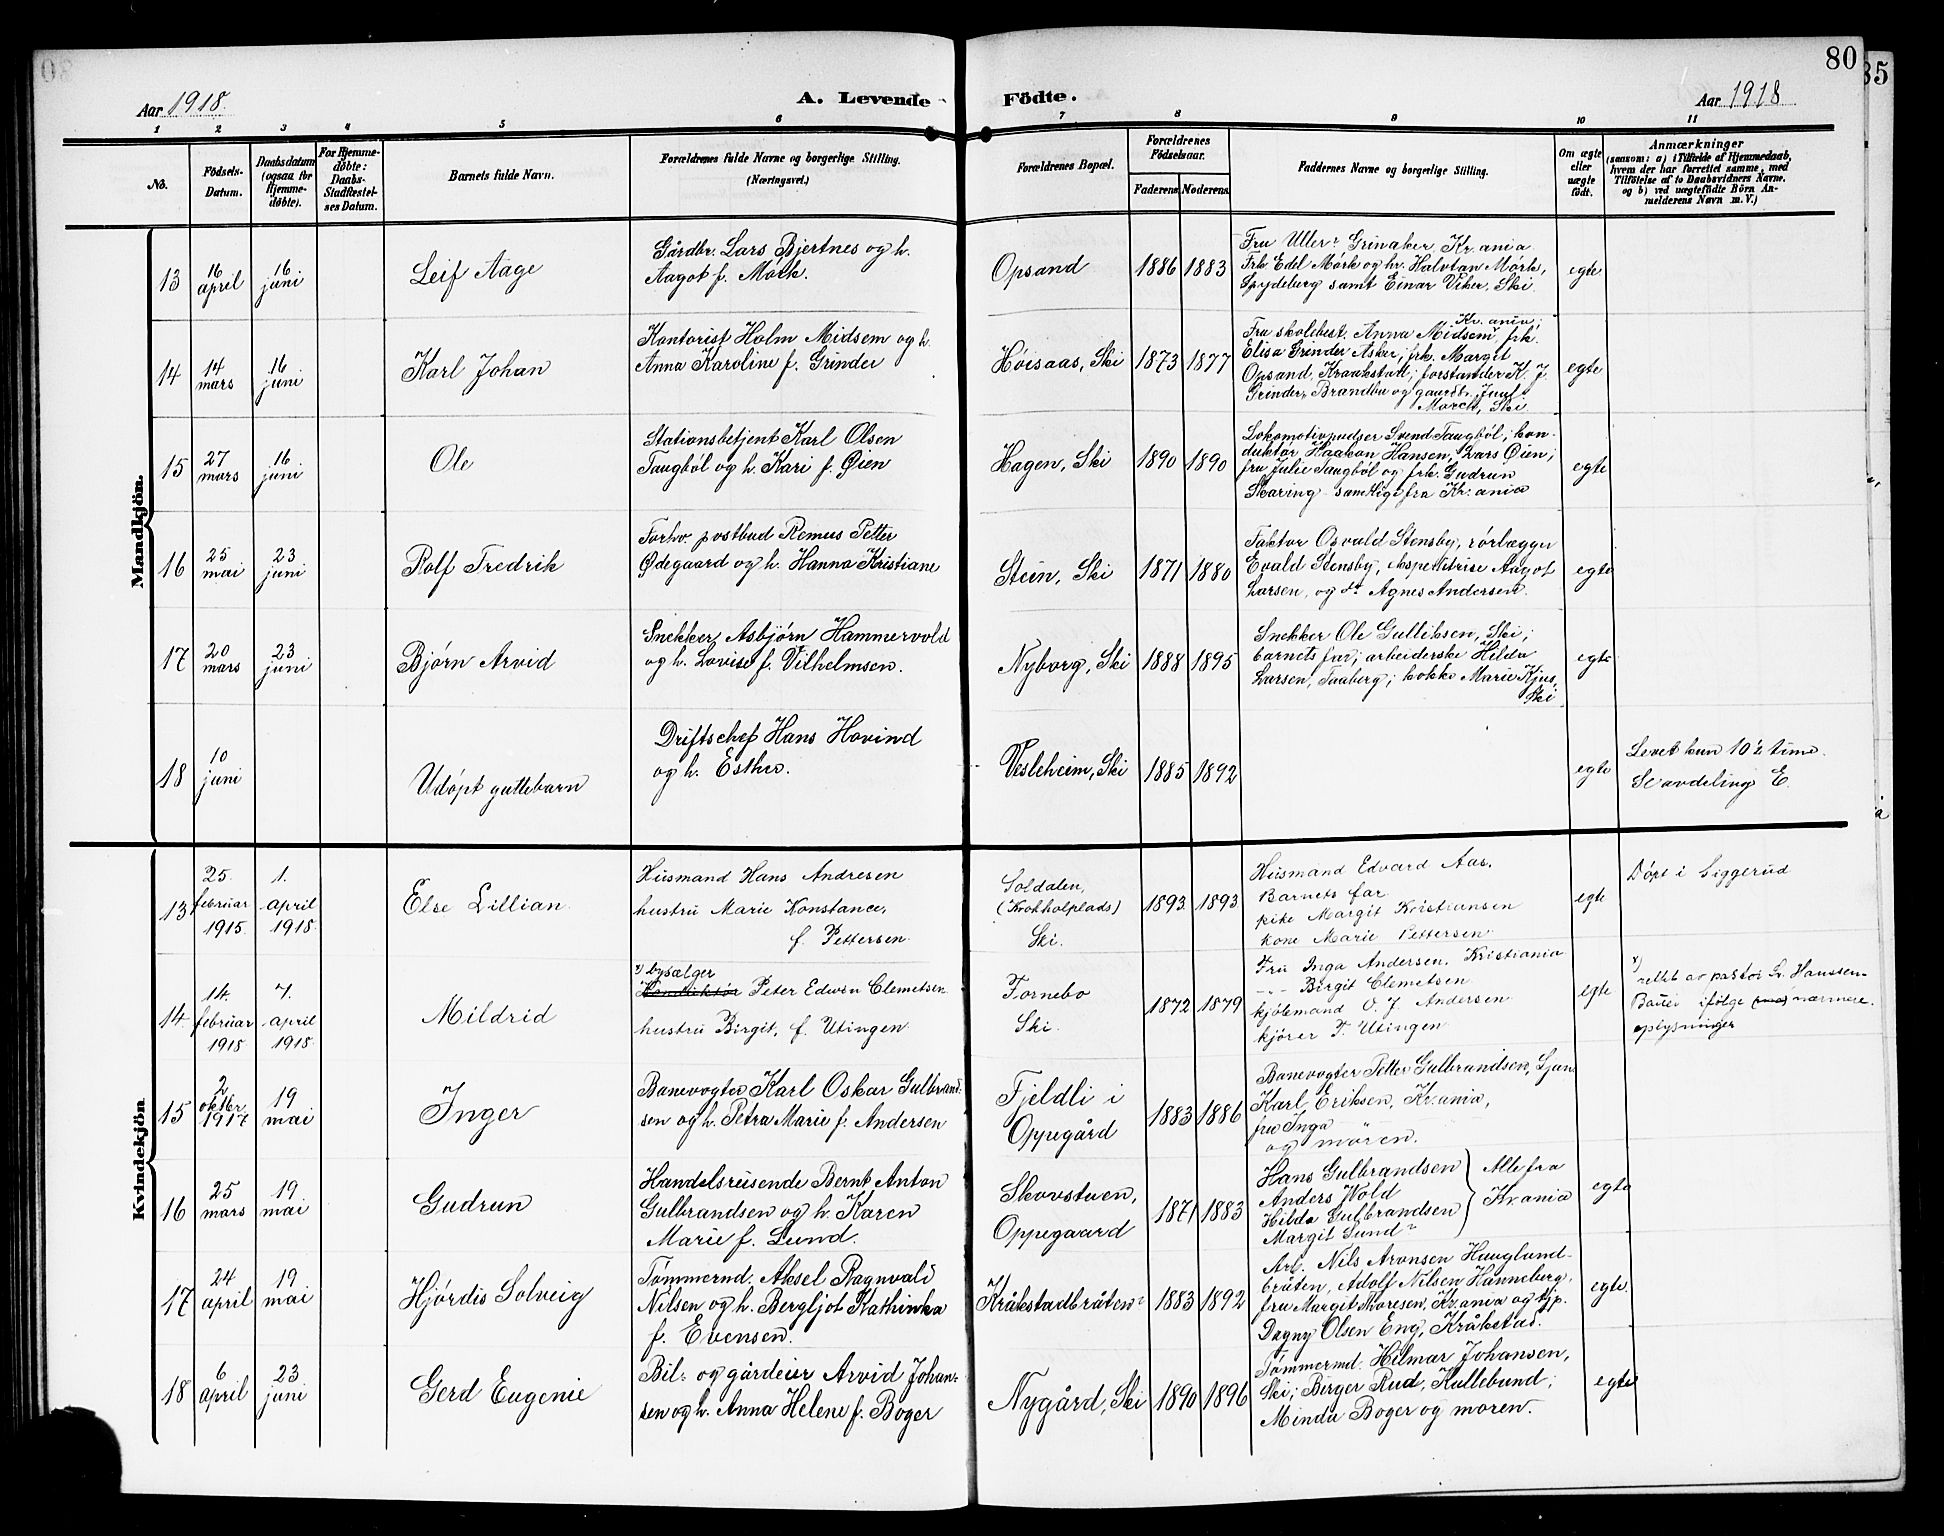 80
85
Aar 1918.
A. Levende
Födte.
Aar 1918
1 2 3 4 5 6 7 8 9 10 11
No.
Födsels-
Datum.
Daabsdatum
(ogsaa for
Hjemme-
döbte).
For Hjemme-
döbte:
Daabs-
Stadfæstel-
ses Datum.
Barnets fulde Navn.
Forældrenes fulde Navne og borgerlige Stilling.
(Næringsvei.)
Forældrenes Bopæl.
Forældrenes
Födselsaar.
Faderens Moderens
Faddernes Navne og borgerlige Stilling.
Om ægte
eller
uægte
födt.
Anmærkninger
(saasom: a) i Tilfælde af Hjemmedaab,
hvem der har forrettet samme, med
Tilföielse af to Daabsvidners Navne.
og b) ved uægtefödte Börn An-
melderens Navn m. V.)
Mandkjön.
13
16
april
16
juni
Leif Aage
Gårdbr. Lars Bjertnes og h.
Aagot f. Mörk.
Opsand
1886 1883
Fru Grinaker, Kr.ania
Frk. Edel Mörk og hr. Halvtan Mörk,
Spydeberg samt Einar Viker, Ski.
egte
14
14
mars
16
juni
Karl Johan
Kontorist Holm Midsem og h.
Anna Karoline f. Grinder
Höisaas, Ski
1873 1877
Kr.ania;
Fru skolebest. Anna Midsem, frk.
Elisa Grinder Asker; frk. Margit
Opsand, Kraakstad; forstander K. J.
Grinder, Brandbu og gaardbr. Juul
March, Ski
egte
15
27
mars
16
juni
Ole
Stationsbetjent Karl Olsen
Taugböl og h. Kari f. Øien
Hagen, Ski
1890 1890
Lokomotivpudser Svend Taugböl; kon-
duktör Haakon Hansen, Lars Öien;
fru Julie Taugböl og frk. Gudrun
Skaring - samtlige fra Kr.ania
egte
16
25
mai
23
juni
Rolf Fredrik
Forhv. postbud Remus Petter
Ødegaard og h. Hanna Kristiane
Stein, Ski
1871 1880
Faktor Osvald Stensby, rörlægger
Evald Stensby, Aagot
Larsen, og dt Agnes Andersen.
egte
17
20
mars
23
juni
Björn Arvid
Snekker Asbjörn Hammervold
og h. Lovise f. Vilhelmsen.
Nyborg, Ski
1888 1895
Snekker Ole Gulliksen, Ski;
barnets far; arbeiderske Hilda
Larsen, Taaberg; kokke Marie Kjus,
Ski
egte
18
10
juni
Udöpt guttebarn
Driftschef Hans Hovind
og h. Esther.
Vesleheim, Ski
1885 1892
egte
Levet kun 10½ time.
Se avdeling E.
Kvindekjön
13
25.
februar
1915
1.
april
1918.
Else Lillian
Husmand Hans Andresen
hustru Marie Konstance,
f. Pettersen.
Soldalen,
(Krokholplads)
Ski.
1893. 1893.
Husmand Edvard Aas.
Barnets far
pike Margit Kristiansen
kone Marie Pettersen
egte
Döpt i Siggerud
14
14.
februar
1918
7.
april
1918.
Mildrid
x) bysælger
Konduktör Peter Edwin Clemetsen
hustru Birgit, f. Utingen
Fornebo
Ski.
1872 1879
Fru Inga Andersen. Kristiania
- " - Birgit Clemetsen
kjölemand O. J. Andersen
kjörer T. Utingen
egte
x)
rettet av pastor Sv. Hanssen-
Bauer ifölge nærmere
oplysninger
15
2
oktbr.
1917
19
mai
Inger
Banevogter Karl Oskar Gulbrand-
sen og h. Petra Marie f. Andersen
Fjeldli i
Oppegård
1883 1886
Banevogter Petter Gulbrandsen, Ljan
Karl Eriksen, Kr.ania,
fru Inga
og moren.
16
25
mars
19
mai
Gudrun
Handelsreisende Bernt Anton
Gulbrandsen og h. Karen
Marie f. Lund.
Skovstuen,
Oppegaard
1871 1883
Hans Gulbrandsen
Anders Wold
Hilda Gulbrandsen
Margit Lund
Alle fra
Kr.ania
egte
17
24
april
19
mai
Hjördis Solveig
Tömmermd. Aksel Ragnvald
Nilsen og h. Bergljot Kathinka
f. Evensen.
Kråkstadbråten
1883 1892
Arb. Nils Aronsen Haugland-
bråten, Adolf Nilsen Hanneberg,
fru Margit Thoresen, Kr.ania og tjp.
Dagny Olsen Eng, Kråkstad.
egte.
18
6
april
23
juni
Gerd Eugenie
Bil- og gårdeier Arvid Johan-
sen og h. Anna Helene f. Boger
Nygård, Ski
1890 1896
Tömmermd. Hilmar Johansen,
Ski; Birger Rud, Kullebund;
Minda Boger og moren.
egte